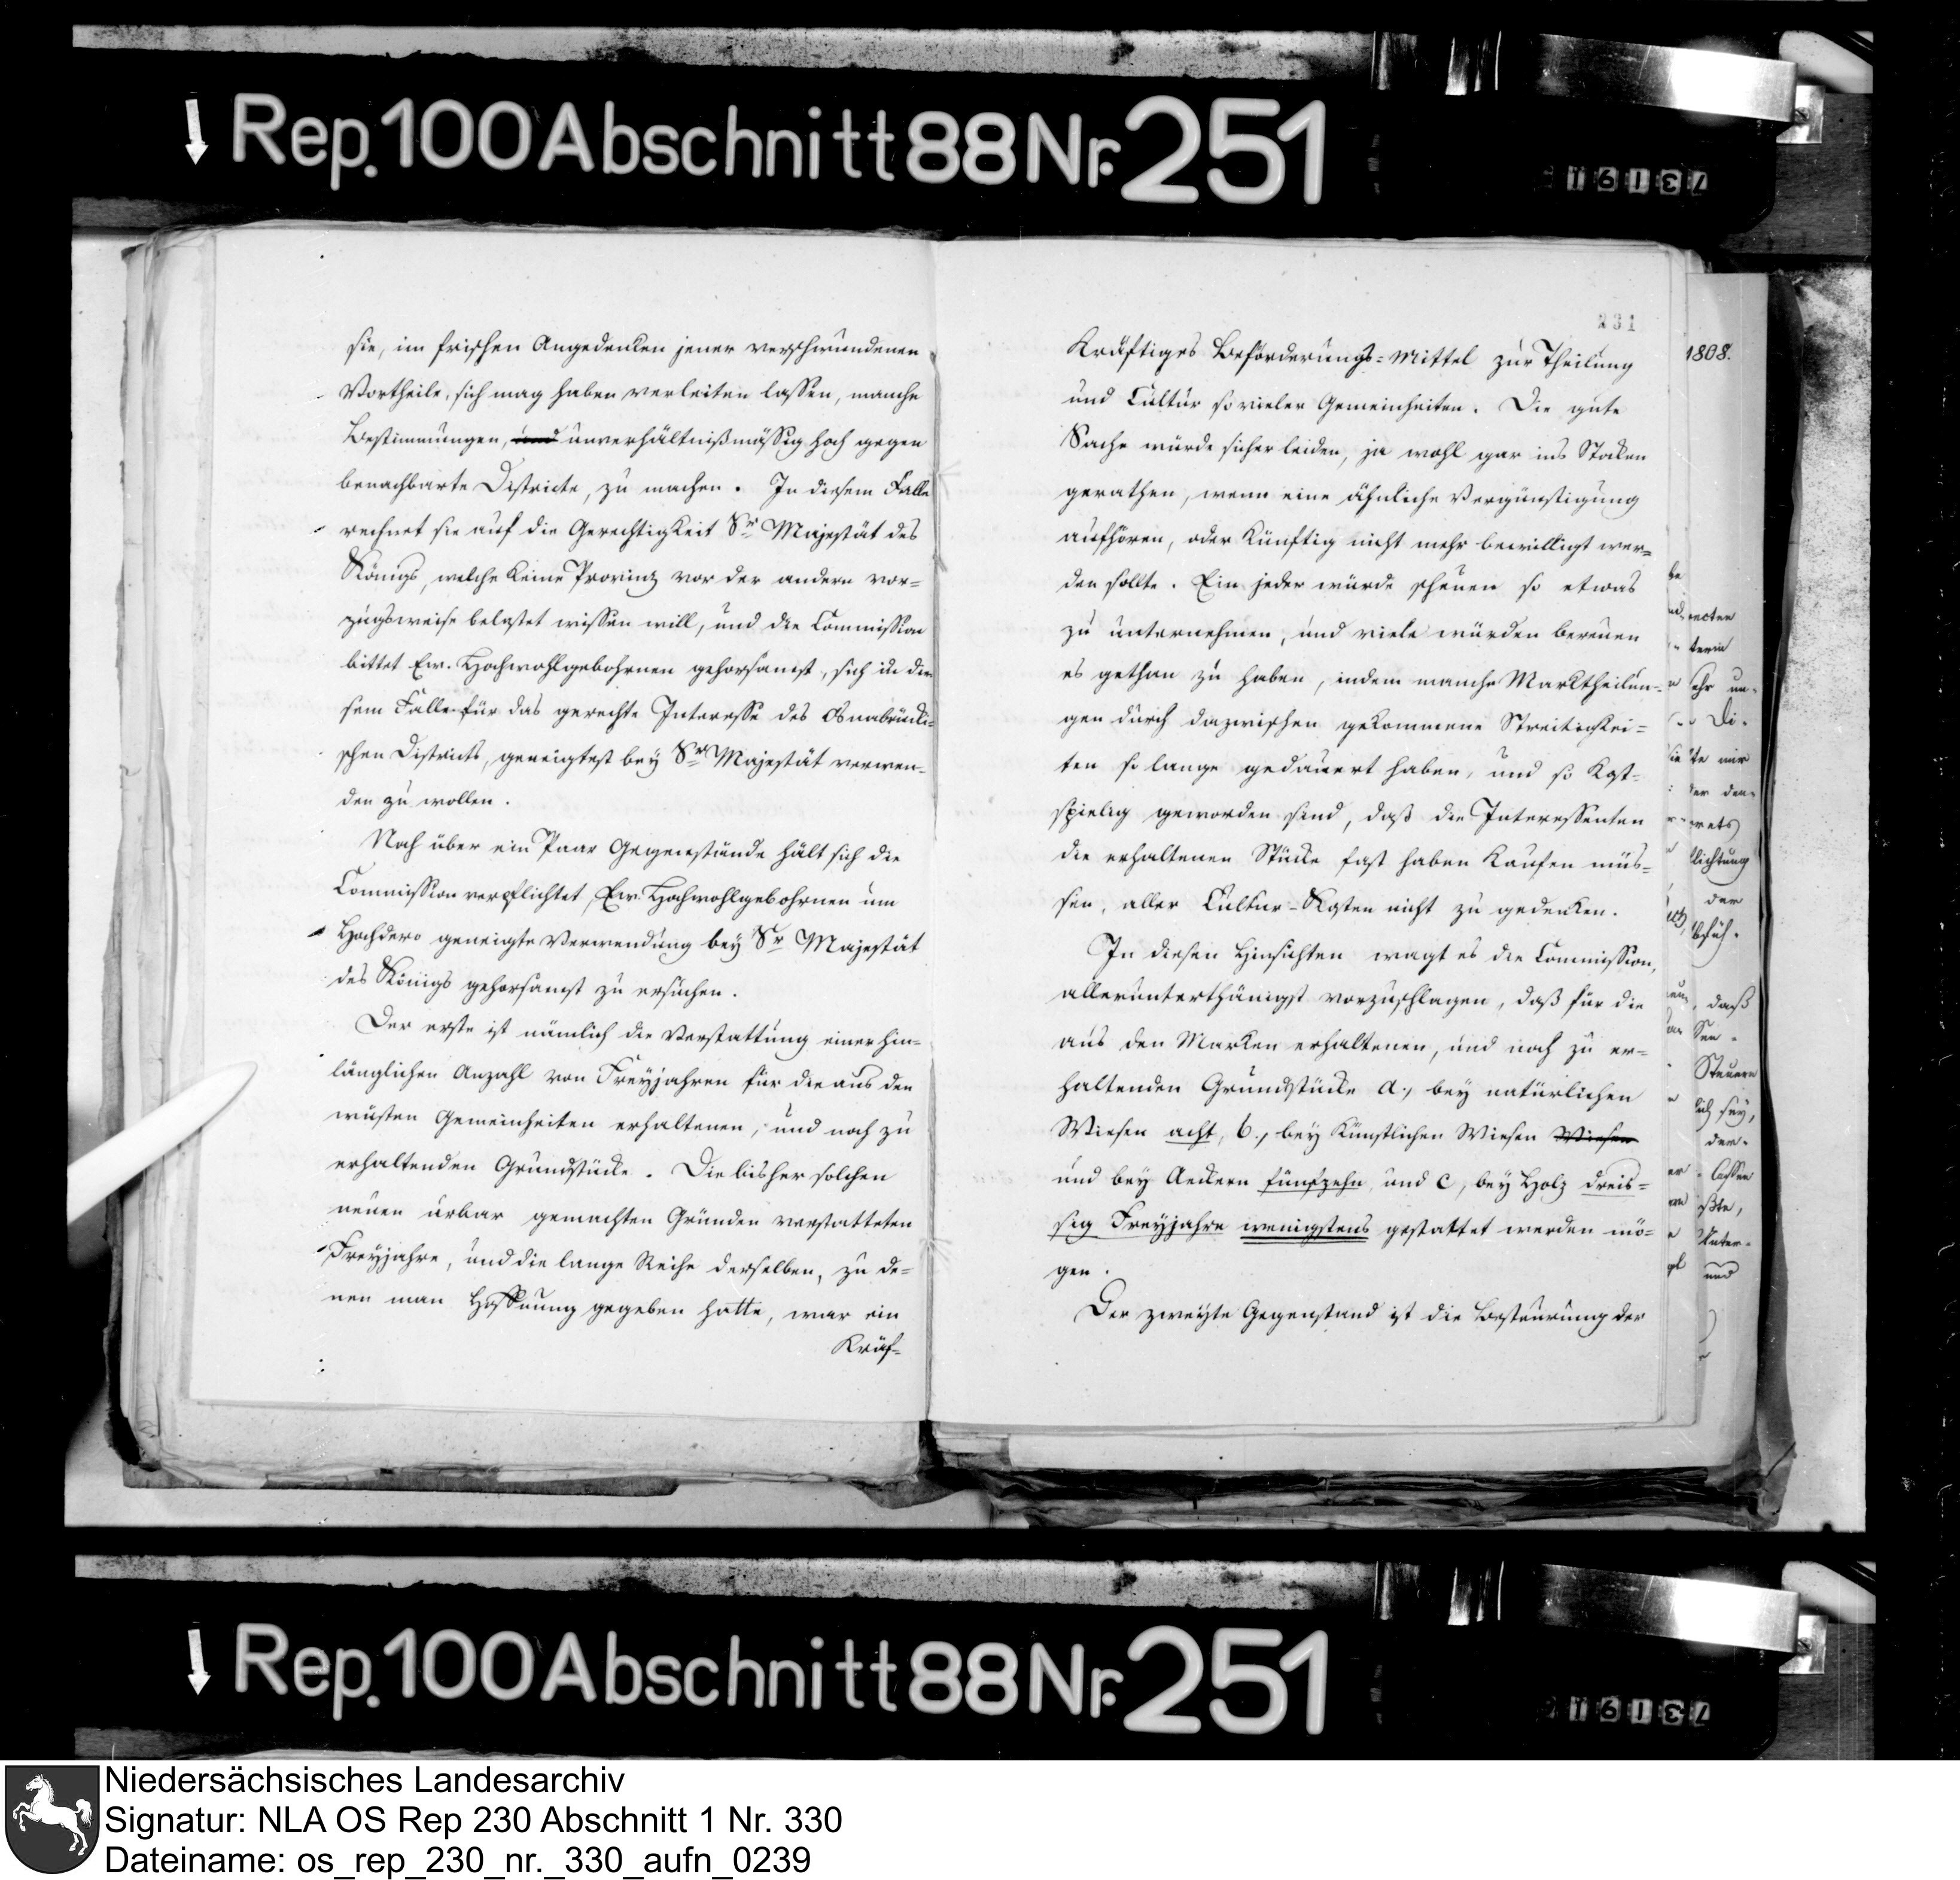 Rep. 100 Abschnitt 88 Nr. 251
73191
sie, im frischen Angedenken jener verschwundenen
Vortheile, sich mag haben verleiten lassen, manche
Bestimmungen, und unverhältnißmässig hoch gegen
benachbarte Districte, zu machen. In diesem Falle
rechnet sie auf die Gerechtigkeit Sr Majestät des
Königs, welche keine Provinz vor der andern vor=
zugsweise belastet wissen will, und die Commission
bittet Ew. Hochwohlgebohrnen gehorsamst, sich in die
sem Falle für das gerechte Interesse des Osnabrücki=
schen Districts, geneigtest bey Sr Majestät verwen=
den zu wollen.
Noch über ein Paar Gegenstände hält sich die
Commission verpflichtet, Ew. Hochwohlgebohrnen um
Hochdero geneigte Verwendung bey Sr Majestät
des Königs gehorsamst zu ersuchen.
Der erste ist nämlich die Verstattung einer hin=
länglichen Anzahl von Freyjahren für die aus den
wüsten Gemeinheiten erhaltenen, und noch zu
erhaltenden Grundstücke. Die bisher solchen
neuen urbar gemachten Gründen verstatteten
Freyjahre, und die lange Reihe derselben, zu de=
nen man Hoffnung gegeben hatte, war ein
Kräf=
231
Kräftiges Beförderungs=Mittel zur Theilung
und Cultur so vieler Gemeinheiten. Die gute
Sache würde sicher leiden, ja wohl gar ins Stocken
gerathen, wenn eine ähnliche Vergünstigung
aufhören, oder künftig nicht mehr bewilligt wer=
den sollte. Ein jeder würde scheuen so etwas
zu unternehmen, und viele würden bereuen
es gethan zu haben, indem manche Marktheilun=
gen durch dazwischen gekommene Streitigkei=
ten so lange gedauert haben, und so kost=
spielig geworden sind, daß die Interessenten
die erhaltenen Stücke fast haben kaufen müs=
sen, aller Cultur-Kosten nicht zu gedenken.
In diesen Hinsichten wagt es die Commission,
allerunterthänigst vorzuschlagen, daß für die
aus den Marken erhaltenen, und noch zu er=
haltenden Grundstücke a., bey natürlichen
Wiesen acht, b., bey künstlichen Wiesen Wiesen
und bey Aeckern fünfzehn und c, bey Holz dreis=
sig Freyjahre wenigstens gestattet werden mö=
gen.
Der zweyte Gegenstand ist die Besteurung der
1808.
daß
Steuern
der=
lassen
Unter=
und
Rep. 100 Abschnitt 88 Nr. 251
73191
Niedersächsisches Landesarchiv
Signatur: NLA OS Rep 230 Abschnitt 1 Nr. 330
Dateiname: os_rep_230_nr._330_aufn_0239